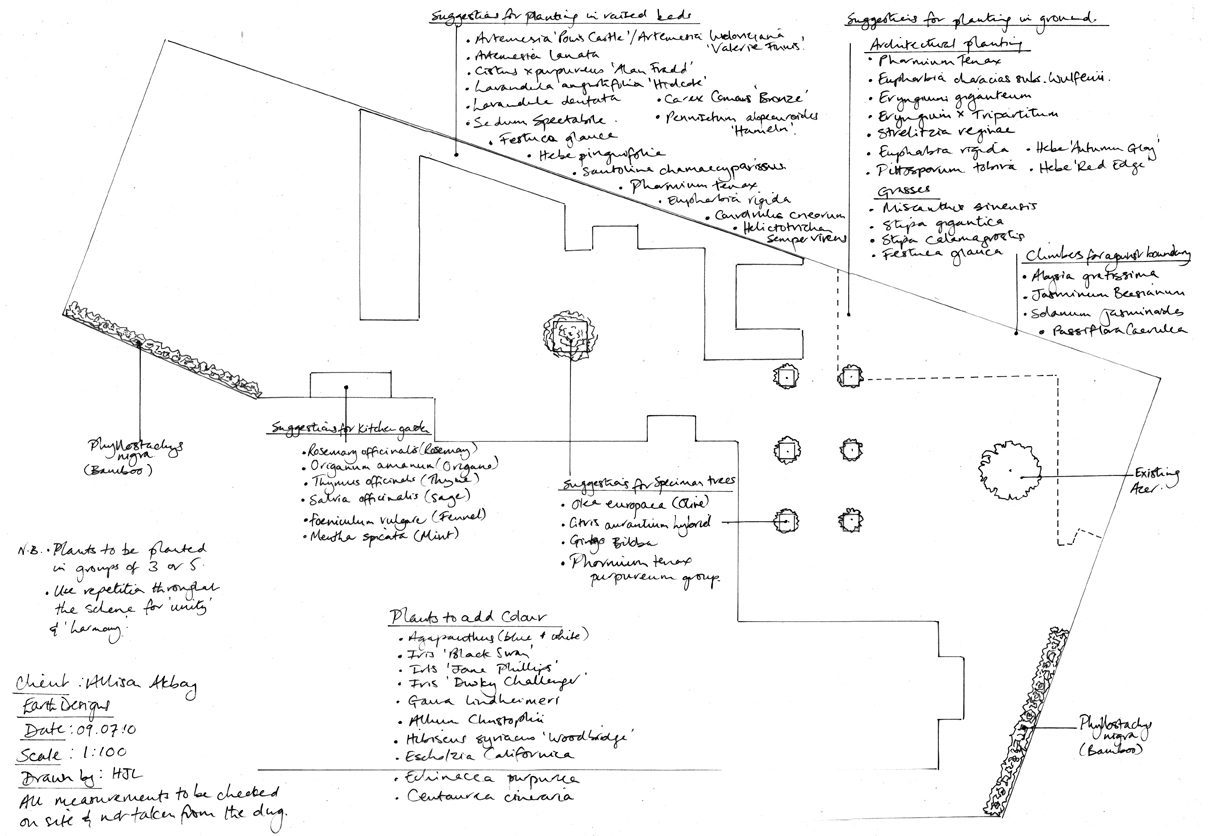 Suggestions for planting in raised beds
• Artemesia 'Powis Castle' / Artemesia ludoviciana
'Valerie Finnis'.
• Artemesia lanata
• Cistus x purpureus 'Alan Fradd'
• Lavandula angustifolia 'Hidcote'
• Lavandula dentata
• Carex Comans 'Bronze'
• Sedum Spectabile.
• Pennisetum alopecuroides
'Hameln'.
• Festuca glauca
• Hebe pinguifolia
• Santolina chamaecyparissus
• Phormium tenax
• Euphorbia rigida
• Convolvulus cneorum
• Helictotrichon
Sempervirens
Suggestions for planting in ground.
Architectural planting
• Phormium Tenax
• Euphorbia characias subs. Wulfenii.
• Eryngium giganteum
• Eryngium x Tripartitum
• Strelitzia reginae
• Euphorbia rigida • Hebe 'Autumn Glory'
• Pittosporum tobira • Hebe 'Red Edge'
Grasses
• Miscanthus sinensis
• Stipa gigantica
• Stipa Calamagrostis
• Festuca glauca
Climbers for against boundary
• Aloysia gratissima
• Jasminum Beesianum
• Solanum jasminoides
• Passiflora Caerulea
Phyllostachys
nigra
(Bamboo)
Suggestions for Kitchen garden
• Rosemary officinalis (Rosemary)
• Origanum amanum (Origano)
• Thymus officinalis (Thyme)
• Salvia officinalis (Sage)
• Foeniculum vulgare (Fennel)
• Mentha spicata (Mint)
Suggestions for Specimen trees
• Olea europaea (Olive)
• Citris aurantium hybrid
• Ginkgo Biloba
• Phormium tenax
purpureum group.
Existing
Acer.
N.B. • Plants to be planted
in groups of 3 or 5.
• Use repetition throughout
the scheme for 'unity'
& 'harmony'.
Plants to add Colour
• Agapanthus (blue & white)
• Iris 'Black Swan'
• Iris 'Jane Phillips'
• Iris 'Dusky Challenger'
• Gaura lindheimeri
• Allium Christophii
• Hibiscus syriacus 'Woodbridge'
• Escholzia Californica
• Echinacea purpurea
• Centaurea cineraria
Phyllostachys
nigra
(Bamboo)
Client : Allison Akbay
Earth Designs
Date : 09.07.10
Scale : 1:100
Drawn by : HJL
All measurements to be checked
on site & not taken from the dwg.